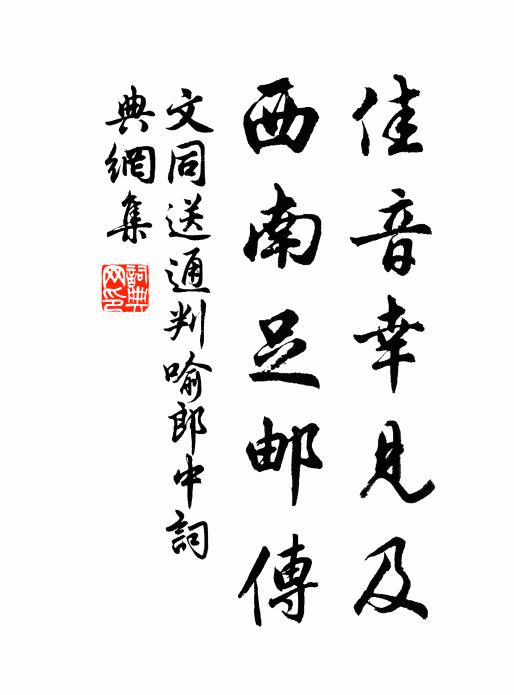 佳音幸見及
西南足邮傳
文同送通判喻郎中詞
典網集
詞典
网印